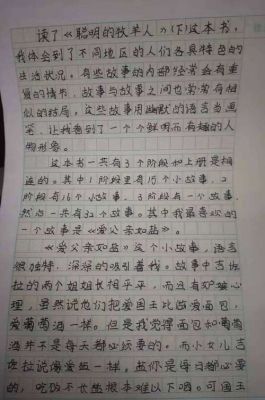 读了《聪明的牧羊人》(下)这本书,
我体会到了不同地区的人们各具特色的
生活状况。有些故事的内部经常会有重
复的情节,故事与故事之间也常常有相
似的结局,这些故事用幽默的语言当画
笔,让我看到了一个个鲜明而有趣的人
物形象。
这本书一共有3个阶段和上册是相
连的。其中1阶段里有15个小故事,2
阶段有16个小故事,3阶段有一个故事,
然后一共有32个故事。其中我最喜欢的
一个故事是《爱父亲如盐》。
《爱父亲如盐》这个小故事,语言
很独特,深深的吸引着我。故事中吉佐
拉的两个姐姐长相平平,而且有妒嫉心
理,虽然说他们把爱国王比做爱面包,
爱葡萄酒一样。但是我觉得面包和葡萄
酒并不是每天都必须事的。而小女儿吉
佐拉说像爱盐一样,盐你是每日都必要
的,吃饭不放盐根本难以下咽。可国王